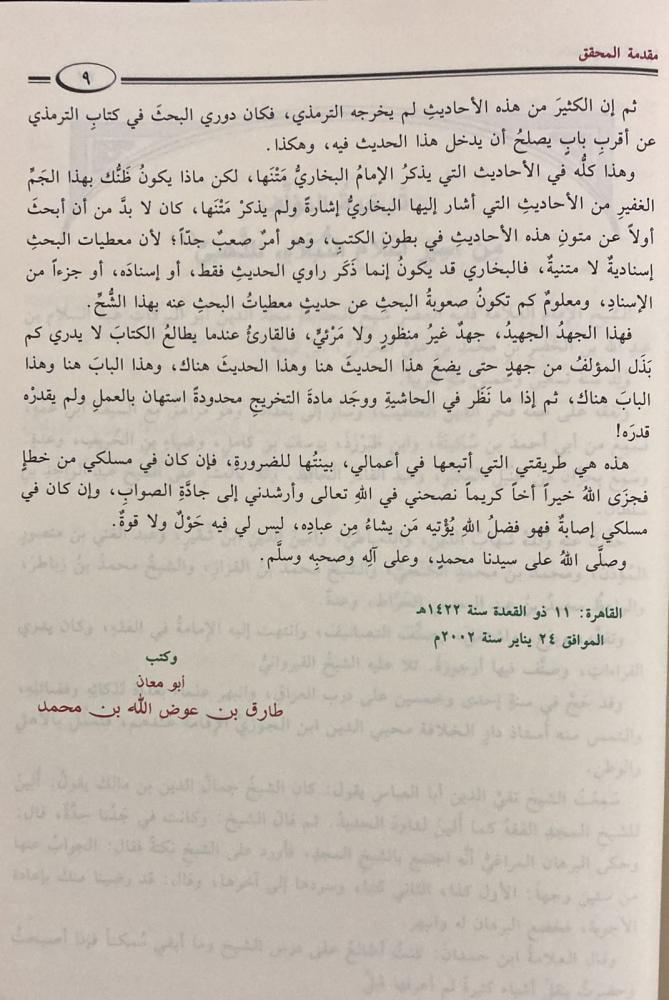 مقدمة المحقق
٩
ثم إن الكثيرَ من هذه الأحاديثِ لم يخرجه الترمذي، فكان دوري البحثَ في كتابِ الترمذي
عن أقربِ بابٍ يصلحُ أن يدخل هذا الحديث فيه، وهكذا.
وهذا كلُّه في الأحاديث التي يذكرُ الإمامُ البخاريُّ مَتْنَها، لكن ماذا يكونُ ظَنُّك بهذا الجَمِّ
الغفيرِ من الأحاديثِ التي أشار إليها البخاريُّ إشارةً ولم يذكرْ مَتْنَها، كان لا بدَّ من أن أبحثَ
أولاً عن متونِ هذه الأحاديثِ في بطونِ الكتبِ، وهو أمرٌ صعبٌ جدّاً؛ لأن معطيات البحثِ
إسناديةٌ لا متنيةٌ، فالبخاري قد يكونُ إنما ذَكَر راوي الحديثِ فقط، أو إسنادَه، أو جزءاً من
الإسنادِ، ومعلومٌ كم تكونُ صعوبةُ البحثِ عن حديثٍ معطياتُ البحثِ عنه بهذا الشُّحِّ.
فهذا الجهدُ الجهيدُ، جهدٌ غيرُ منظورٍ ولا مَرْئيٍّ، فالقارئُ عندما يطالعُ الكتابَ لا يدري كم
بَذَل المؤلفُ من جهدٍ حتى يضعَ هذا الحديثَ هنا وهذا الحديثَ هناك، وهذا البابَ هنا وهذا
البابَ هناك، ثم إذا ما نَظَر في الحاشيةِ ووجَد مادةَ التخريجِ محدودةً استهان بالعملِ ولم يقدرْه
قدرَه!
هذه هي طريقتي التي أتبعها في أعمالي، بينتُها للضرورةِ، فإن كان في مسلكي من خطإٍ
فجزَى اللهُ خيراً أخاً كريماً نصحني في اللهِ تعالى وأرشدني إلى جادَّةِ الصوابِ، وإن كان في
مسلكي إصابةٌ فهو فضلُ اللهِ يُؤْتيه مَن يشاءُ مِن عبادِه، ليس لي فيه حَوْلٌ ولا قوةٌ.
وصلَّى اللهُ على سيدنا محمدٍ، وعلى آلِه وصحبِه وسلَّم.
القاهرة: ١١ ذو القعدة سنة ١٤٢٢هـ
الموافق ٢٤ يناير سنة ٢٠٠٢م
وكتب
أبو معاذ
طارق بن عوض الله بن محمد